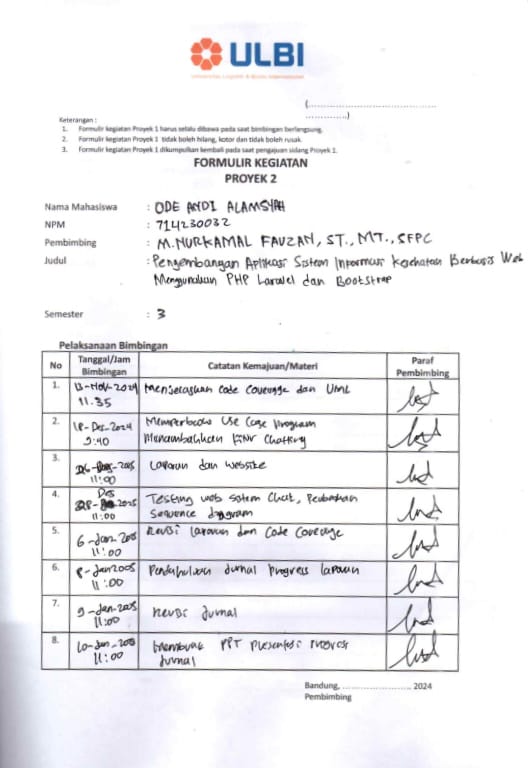 ULBI
Universitas Logistik & Bisnis Internasional
(.......................................
..............)
Keterangan :
1. Formulir kegiatan Proyek 1 harus selalu dibawa pada saat bimbingan berlangsung.
2. Formulir kegiatan Proyek 1 tidak boleh hilang, kotor dan tidak boleh rusak.
3. Formulir kegiatan Proyek 1 dikumpulkan kembali pada saat pengajuan sidang Proyek 1.
FORMULIR KEGIATAN
PROYEK 2
Nama Mahasiswa : ODE ANDI ALAMSYAH
NPM : 714230032
Pembimbing : M. NURKAMAL FAUZAN, ST., MT., SFPC
Judul : Pengembangan Aplikasi Sistem Informasi Kesehatan Berbasis Web
Menggunakan PHP Laravel dan Bootstrap
Semester : 3
Pelaksanaan Bimbingan
No Tanggal/Jam Bimbingan Catatan Kemajuan/Materi Paraf Pembimbing
1. 13-Nov-2024 11.35 Menjelaskan Code Coverage dan UML
2. 18-Des-2024 9:40 Memperbaiki Use Case Program
Menambahkan Fitur Chatting
3. 11:00 Laporan dan Website
4. Des 11:00 Testing web sistem Chat, Perubahan
Sequence diagram
5. 6-Jan-2025 11:00 Revisi Laporan dan Code Coverage
6. 8-Jan2025 11:00 Pendahuluan Jurnal Progress laporan
7. 9-Jan-2025 11:00 Revisi Jurnal
8. 10-Jan-2025 11:00 Membuat PPT Presentasi Progress
Jurnal
Bandung, ........................ 2024
Pembimbing